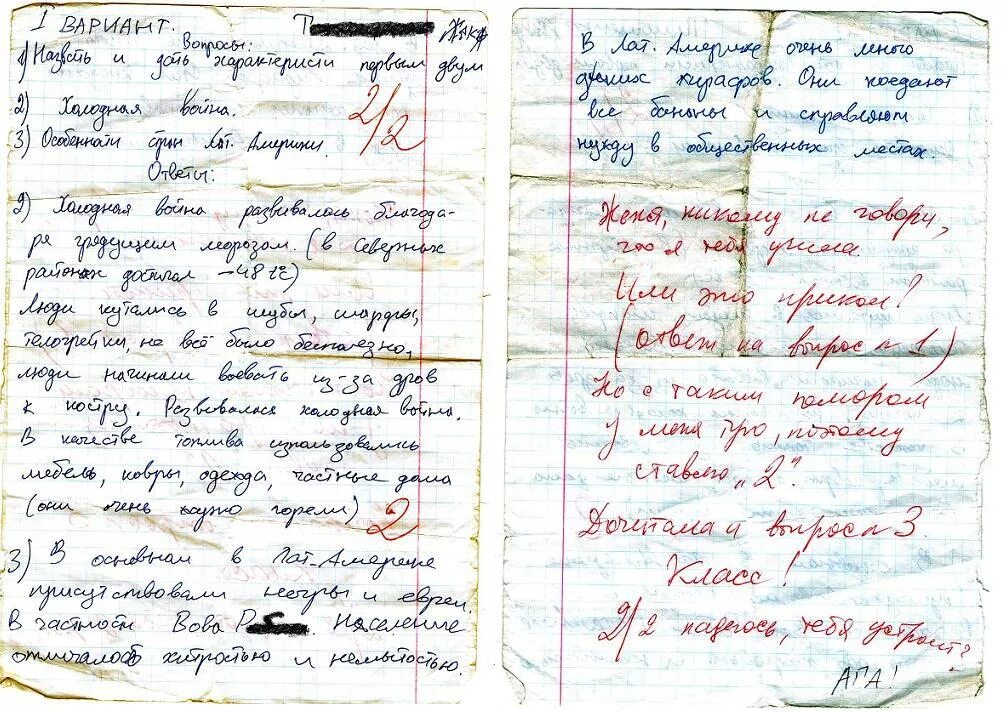 I ВАРИАНТ. Т Женя
Вопросы:
1) Назвать и дать характеристи первым двум
2) Холодная война.
2/2
3) Особеннати стран Лат. Америки.
Ответы:
2) Холодная война развивалась благода-
ря грядущем морозом. (в северных
районах достигал -48 t°C)
Люди кутались в шубы, шарфы,
телогрейки, но всё было бесполезно,
люди начинали воевать из-за дров
к костру. Развивалася холодная война.
В качестве топлива использовались
мебель, ковры, одежда, частные дома
(они очень хужо горели) 2
3) В основном в Лат. Америке
присутствовали негры и евреи.
В частности Вова Р. Население
отличалось хитростью и немытостью.
В Лат. Америке очень много
диких жирафов. Они поедают
все бананы и справляют
нужду в общественных местах.
Женя, никому не говори,
что я тебя учила.
Или это прикол?
(ответ на вопрос № 1)
Но с таким юмором
у меня туго, потому
ставлю „2".
Дочитала и вопрос № 3.
Класс!
2/2 надеюсь, тебя устроит?
АГА!